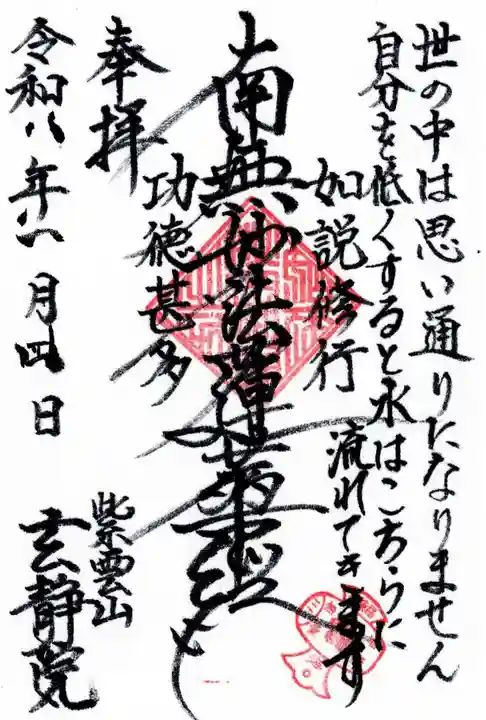 世の中は思い通りになりません
自分を低くすると水はこちらに
流れてきます
如説修行
南無妙法蓮華経
功徳甚多
奉拝
令和八年八月四日
紫雲山
玄静院